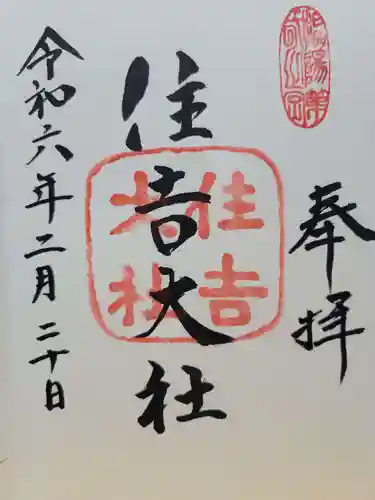 奉拝
住吉大社
住吉
大社
令和六年二月二十日